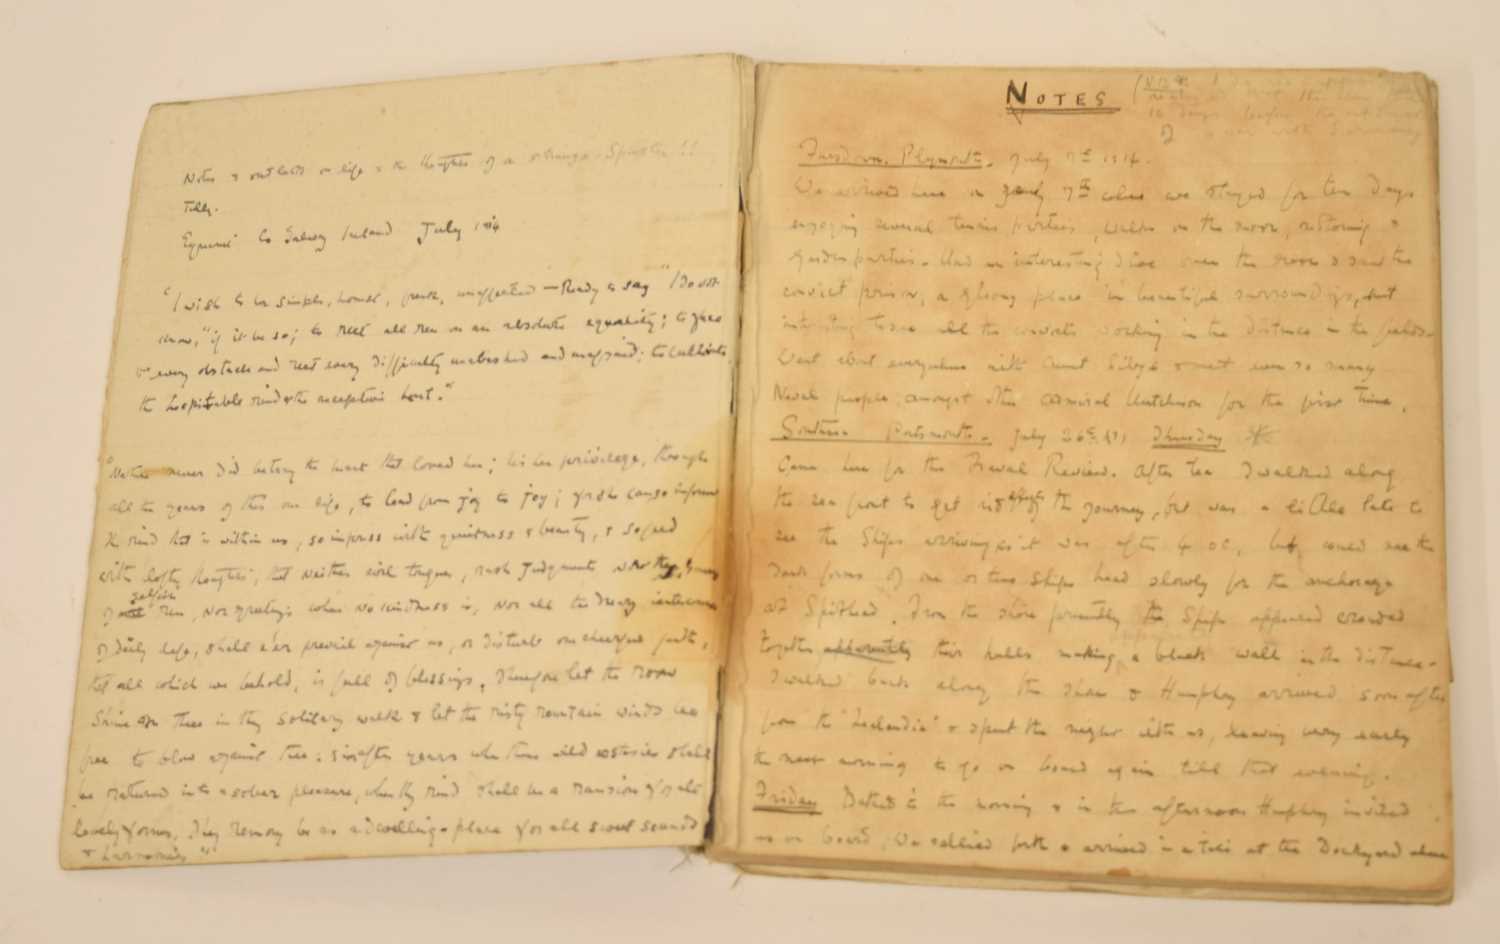 Notes & outlooks on life & the thoughts of a strange Spinster!!
Tilly.
to Galway Ireland July 1914
"I wish to be simple, honest, frank, unaffected — Ready to say "I do not
know," if it be so; to meet all men on an absolute equality; to face
every obstacle and meet every difficulty unabashed and unafraid; to cultivate
the hospitable mind & the receptive heart."
"Nature never did betray the heart that loved her; 'tis her privilege, through
all the years of this our life, to lead from joy to joy; for she can so inform
the mind that is within us, so impress with quietness & beauty, & so feed
with lofty thoughts, that neither evil tongues, rash judgments, nor the sneers
of selfish men, nor greetings where no kindness is, nor all the dreary intercourse
of daily life, shall e'er prevail against us, or disturb our cheerful faith,
that all which we behold, is full of blessings. Therefore let the moon
Shine on thee in thy solitary walk & let the misty mountain winds be
free to blow against thee: & in after years when these wild ecstasies shall
be matured into a sober pleasure, when thy mind shall be a mansion for all
lovely forms, thy memory be as a dwelling-place for all sweet sounds
& harmonies"
NOTES (N.B.
10 days before the outbreak
of war with Germany
Plymouth. July 7th 1914.
We arrived here on July 7th where we stayed for ten days
enjoying several tennis parties, walks on the moor, motoring &
garden parties. Had an interesting drive over the moor & saw the
convict prison, a gloomy place in beautiful surroundings, but
interesting to see all the convicts working in the distance in the fields.
Went about everywhere with Aunt & met ever so many
Naval people, amongst others Admiral Hutchison for the first time.
Southsea Portsmouth. July 26th Thursday
Came here for the Naval Review. After tea I walked along
the sea front to get rid effects of the journey, but was a little late to
see the Ships arriving as it was after 4 oc, but could see the
dark forms of one or two ships head slowly for the anchorage
at Spithead. From the shore presently the Ships appeared crowded
together, apparently their hulls making a black wall in the distance.
I walked back along the shore & Humphrey arrived soon after
from the "Zeelandia" & spent the night with us, leaving very early
the next morning to go on board again till that evening.
Friday Bathed in the morning & in the afternoon Humphrey invited
us on board, We sallied forth & arrived in a taxi at the Dockyard where